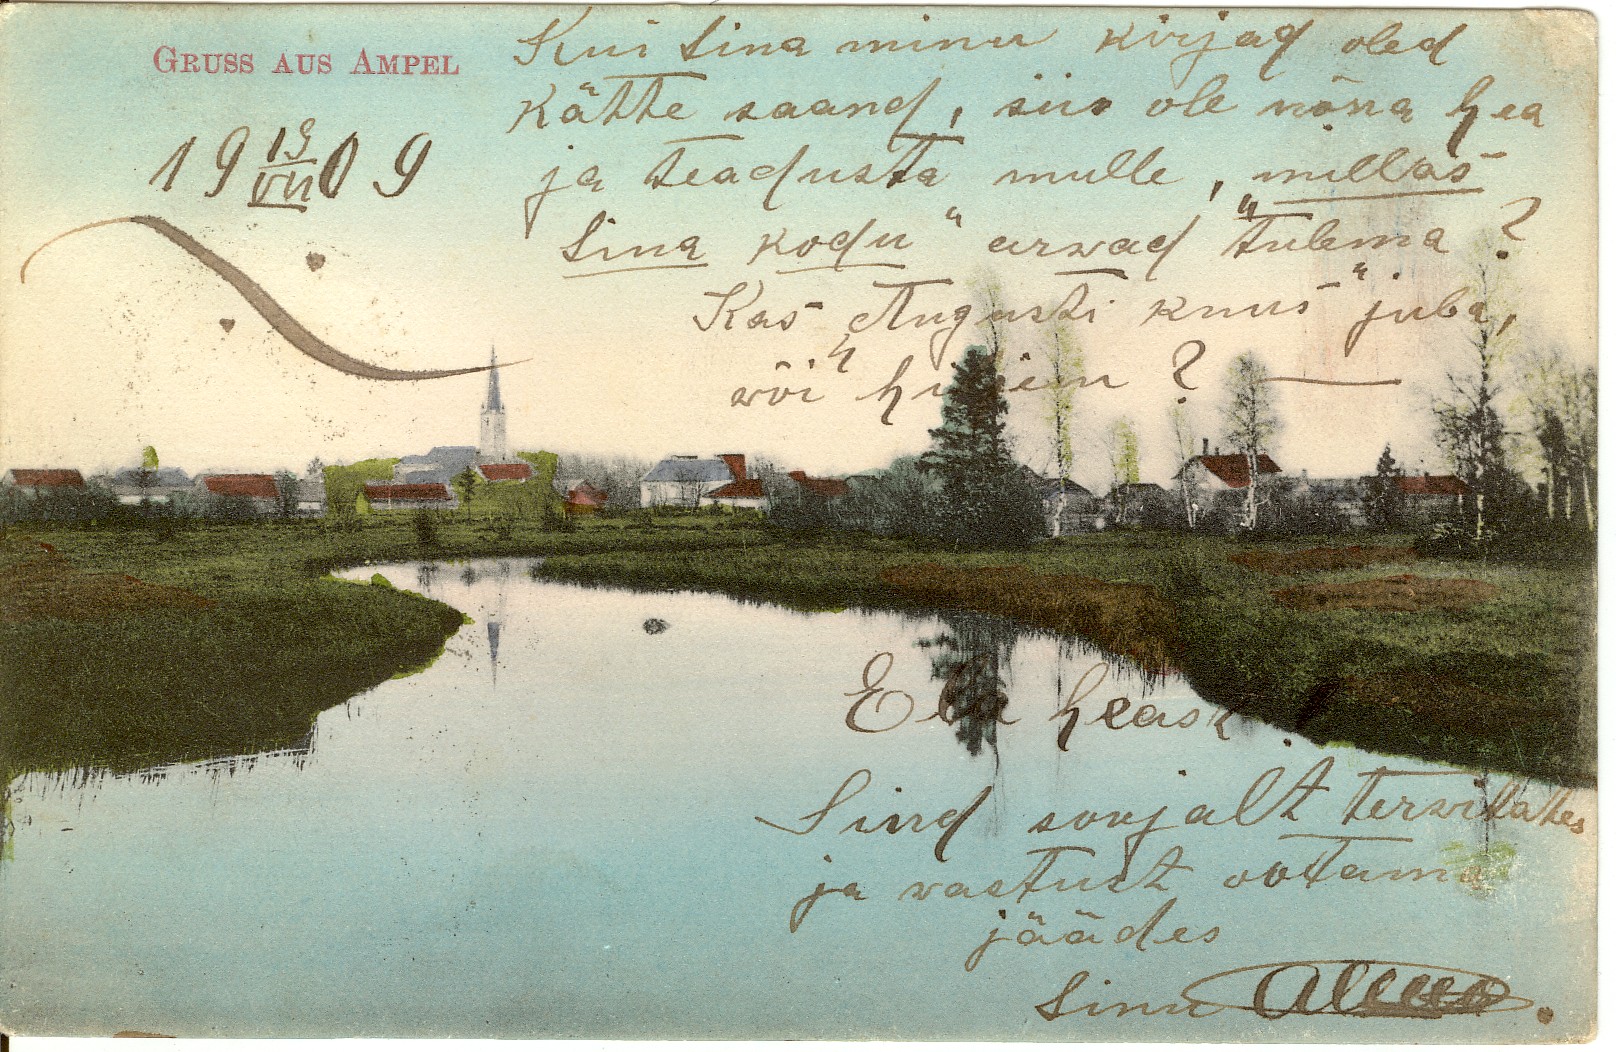 GRUSS AUS AMPEL
19 19/VII 09
Kui Sina minu kirjad oled
kätte saand, siis ole nõnna hea
ja teadusta mulle, „millas
Sina kodu“ arwad „tulema?
Kas „Augusti kuus“ juba,
wõi „hiljem?
Ela heast!
Sind soojalt terwitates
ja wastust ootama
jäädes
Sinu